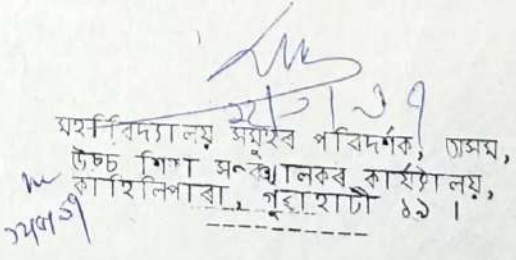 মহাবিদ্যালয় সমূহৰ পৰিদৰ্শক, অসম,
উচ্চ শিক্ষা সঞ্চালকৰ কাৰ্য্যালয়,
কাহিলিপাৰা, গুৱাহাটী ১৯ ।